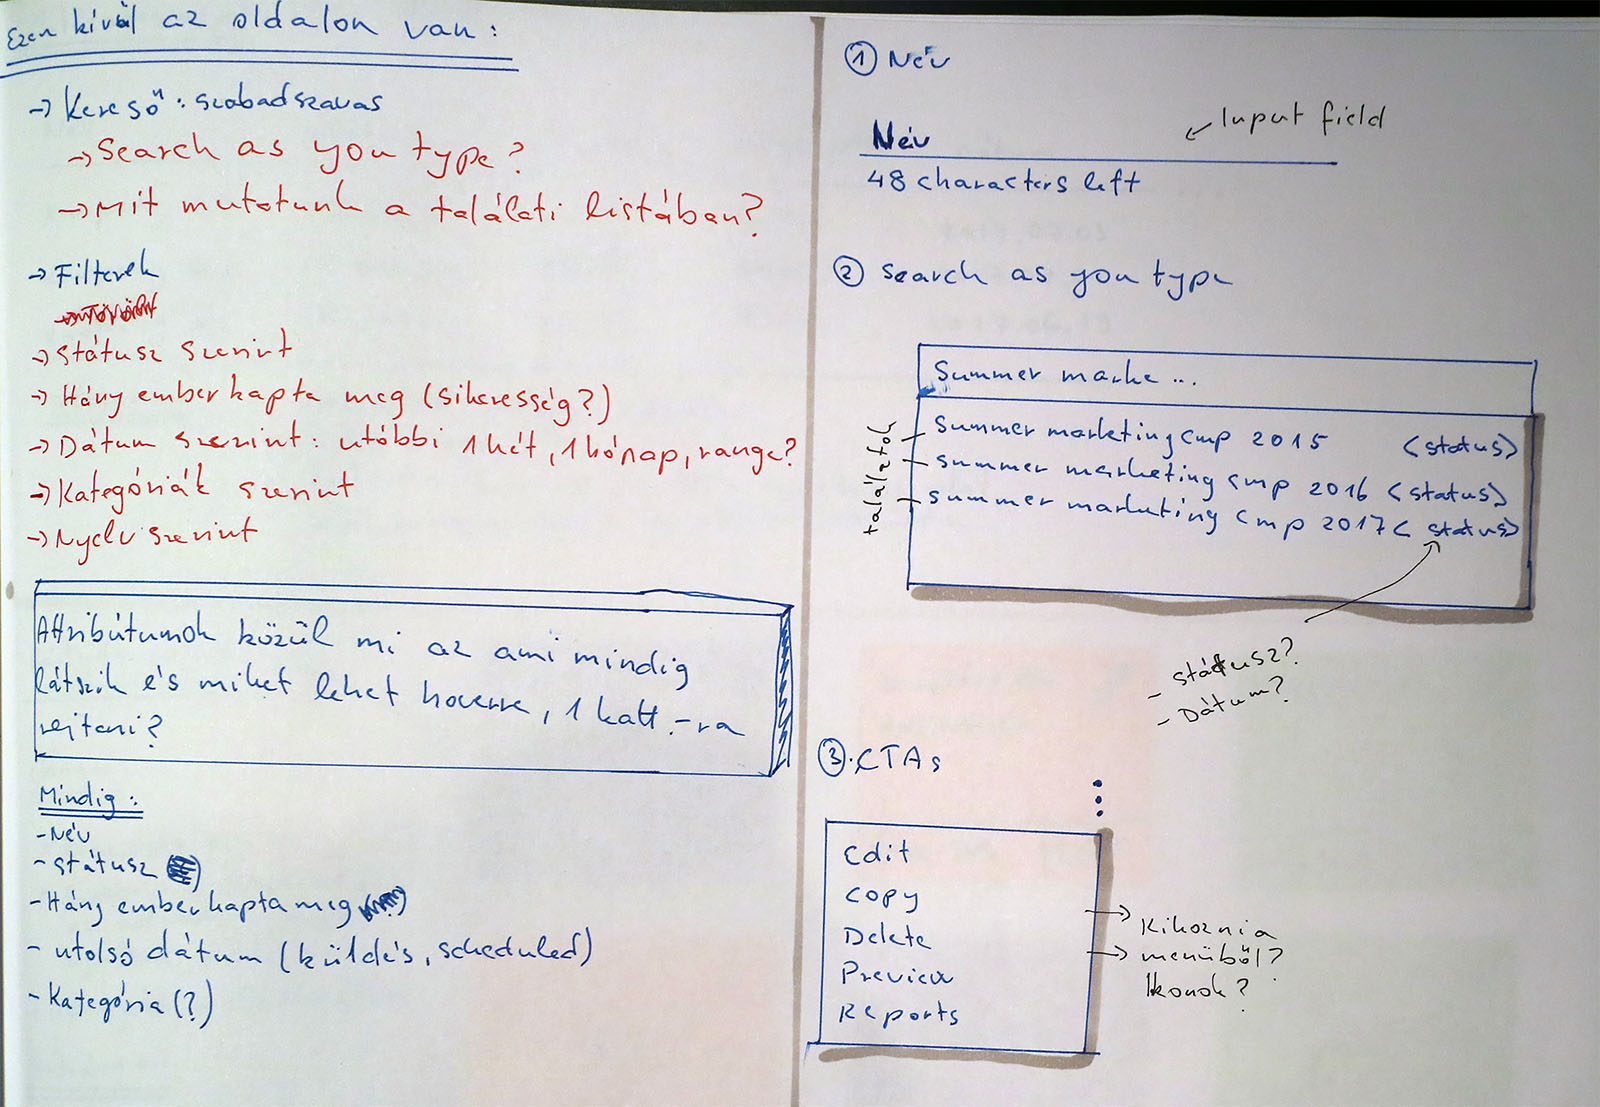 Ezen kívül az oldalon van:
→ Kereső: szabadszavas
→ Search as you type?
→ Mit mutatunk a találati listában?
→ Filterek
→ Státusz szerint
→ Hány ember kapta meg (sikeresség?)
→ Dátum szerint: utóbbi 1 hét, 1 hónap, range?
→ Kategóriák szerint
→ Nyelv szerint
Attribútumok közül mi az ami mindig
látszik és miket lehet hoverre, 1 katt.-ra
rejteni?
Mindig:
- Név
- státusz
- Hány ember kapta meg
- utolsó dátum (küldés, scheduled)
- Kategória (?)
① Név
Név
← Input field
48 characters left
② Search as you type
Summer marke ...
találatok
Summer marketing cmp 2015 <status>
summer marketing cmp 2016 <status>
summer marketing cmp 2017 <status>
- státusz?
- Dátum?
③. CTAs
Edit
Copy
Delete
Preview
Reports
→ Kihoznia
→ menüből?
Ikonok?